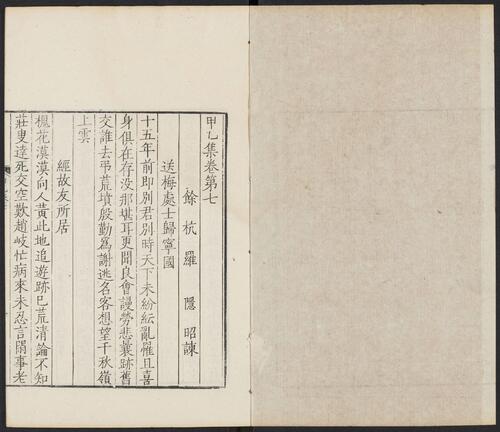 甲乙集卷第七
餘杭羅隱昭諫
送梅處士歸寧國
十五年前即別君別時天下未紛紜亂罹且喜
身俱在存没那堪耳更聞良會謾勞悲曩跡舊
交誰去弔荒墳殷勤爲謝逃名客想望千秋嶺
上雲
經故友所居
槐花漠漠向人黃此地追遊跡巳荒清論不知
莊叟達死交空歎趙岐忙病來未忍言閑事老